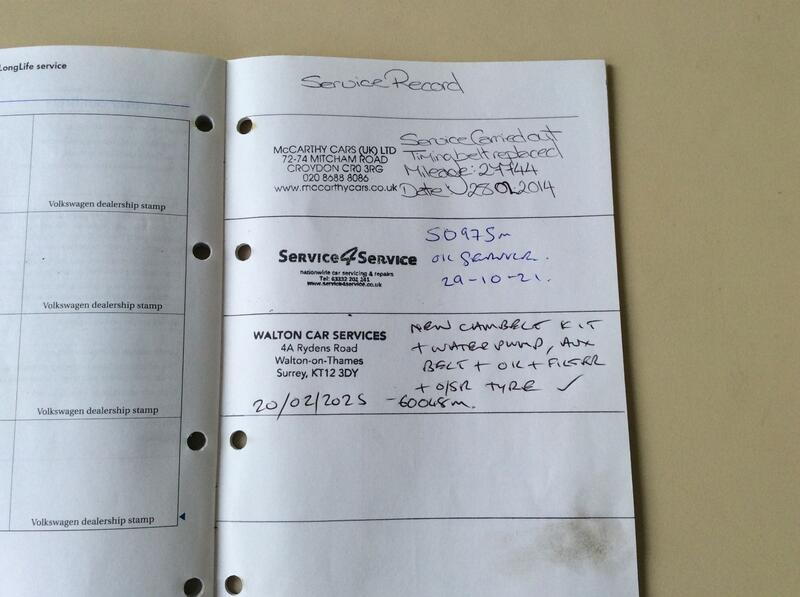 LongLife service
Volkswagen dealership stamp
Volkswagen dealership stamp
Volkswagen dealership stamp
Volkswagen dealership stamp
Service Record
McCARTHY CARS (UK) LTD
72-74 MITCHAM ROAD
CROYDON CR0 3RG
020 8688 8086
www.mccarthycars.co.uk
Service Carried out
Timing belt replaced
Mileage: 27744
Date: 28 01 2014
Service4Service
nationwide car servicing & repairs
www.service4service.co.uk
50975m
OIL SERVICE.
29-10-21.
WALTON CAR SERVICES
4A Rydens Road
Walton-on-Thames
Surrey, KT12 3DY
20/02/2025
NEW CAMBELT KIT
+ WATERPUMP, AUX
BELT + OIL + FILTER
+ O/SR TYRE ✓
-60048m.